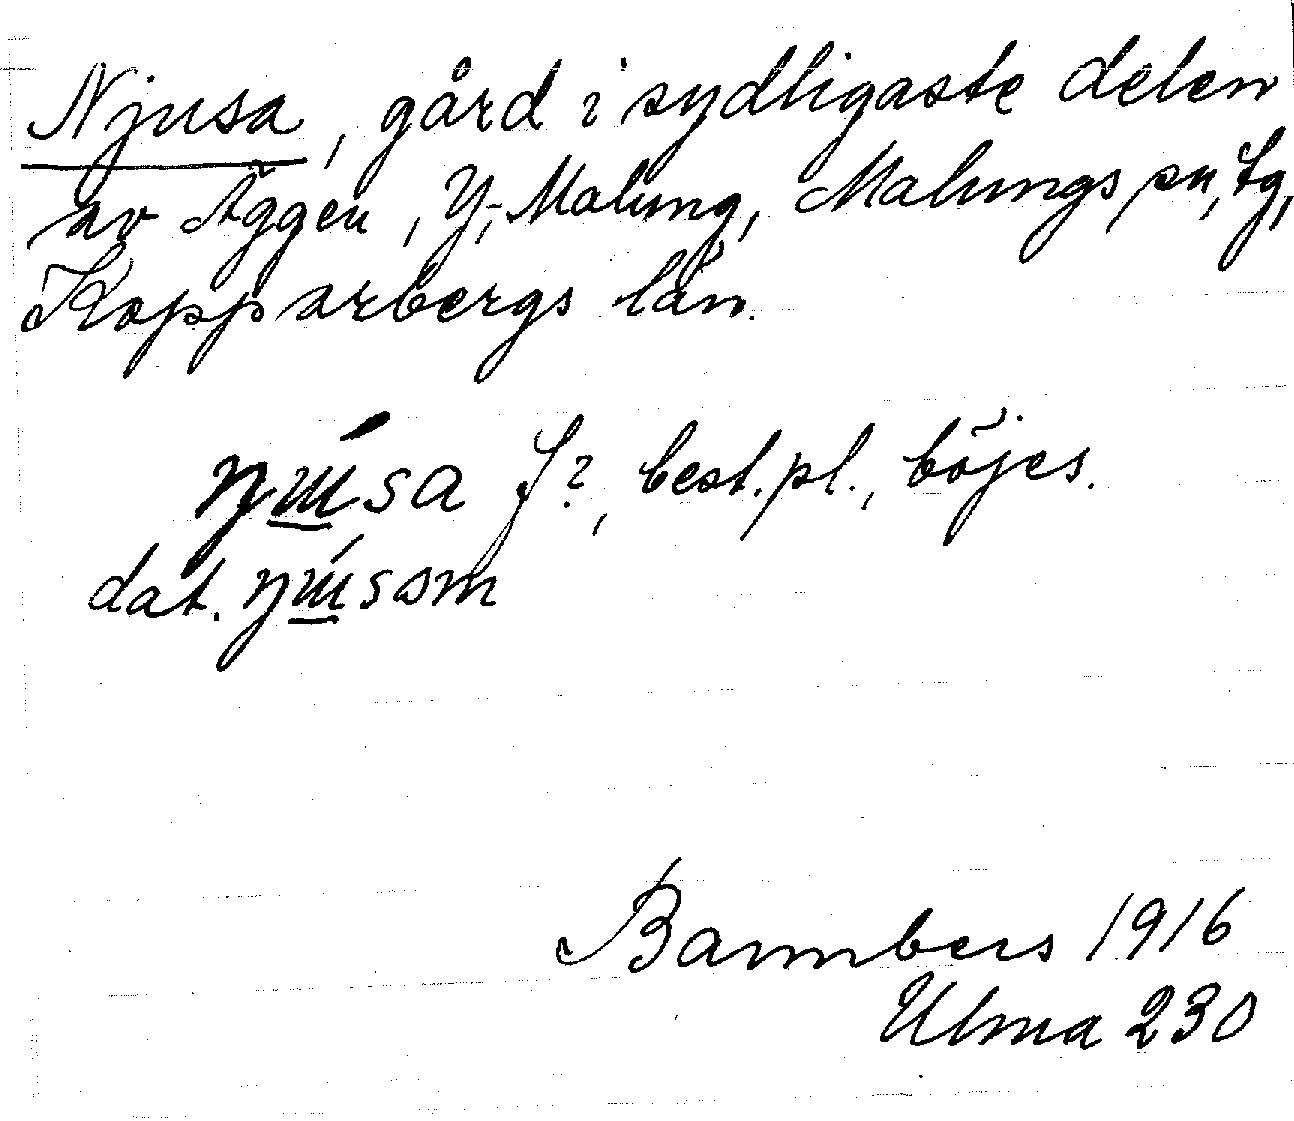 Njusa, gård i sydligaste delen
av Äggen, Y,-Malung, Malungs sn, tg,
Kopparbergs län.
f?, best. pl., böjes.
dat.
1916
Ulma 230